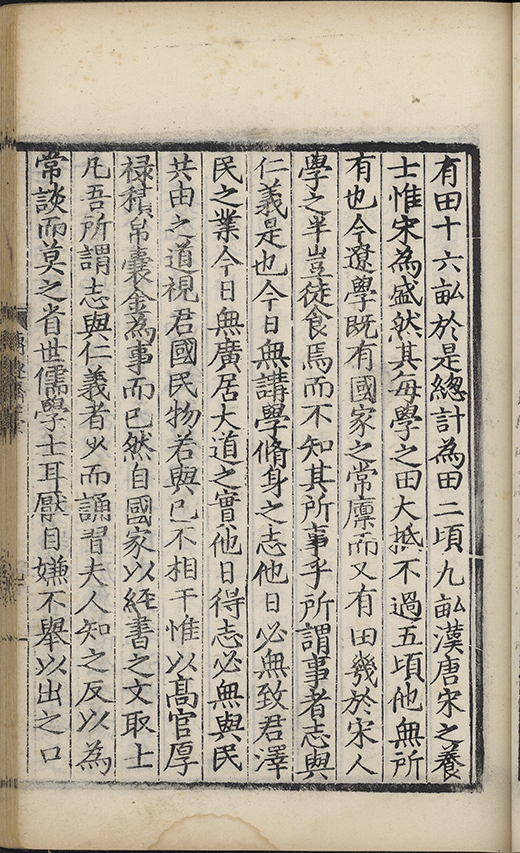 有田十六畝於是總計為田二頃九畝漢唐宋之養
士惟宋為盛然其每學之田大抵不過五頃他無所
有也今遼學既有國家之常廩而又有田幾於宋人
學之半豈徒食焉而不知其所事乎所謂事者志與
仁義是也今日無講學脩身之志他日必無致君澤
民之業今日無廣居大道之實他日得志必無與民
共由之道視君國民物若與己不相干惟以高官厚
祿積帛囊金為事而已然自國家以經書之文取士
凡吾所謂志與仁義者少而誦習夫人知之反以為
常談而莫之省世儒學士耳厭目嫌不舉以出之口